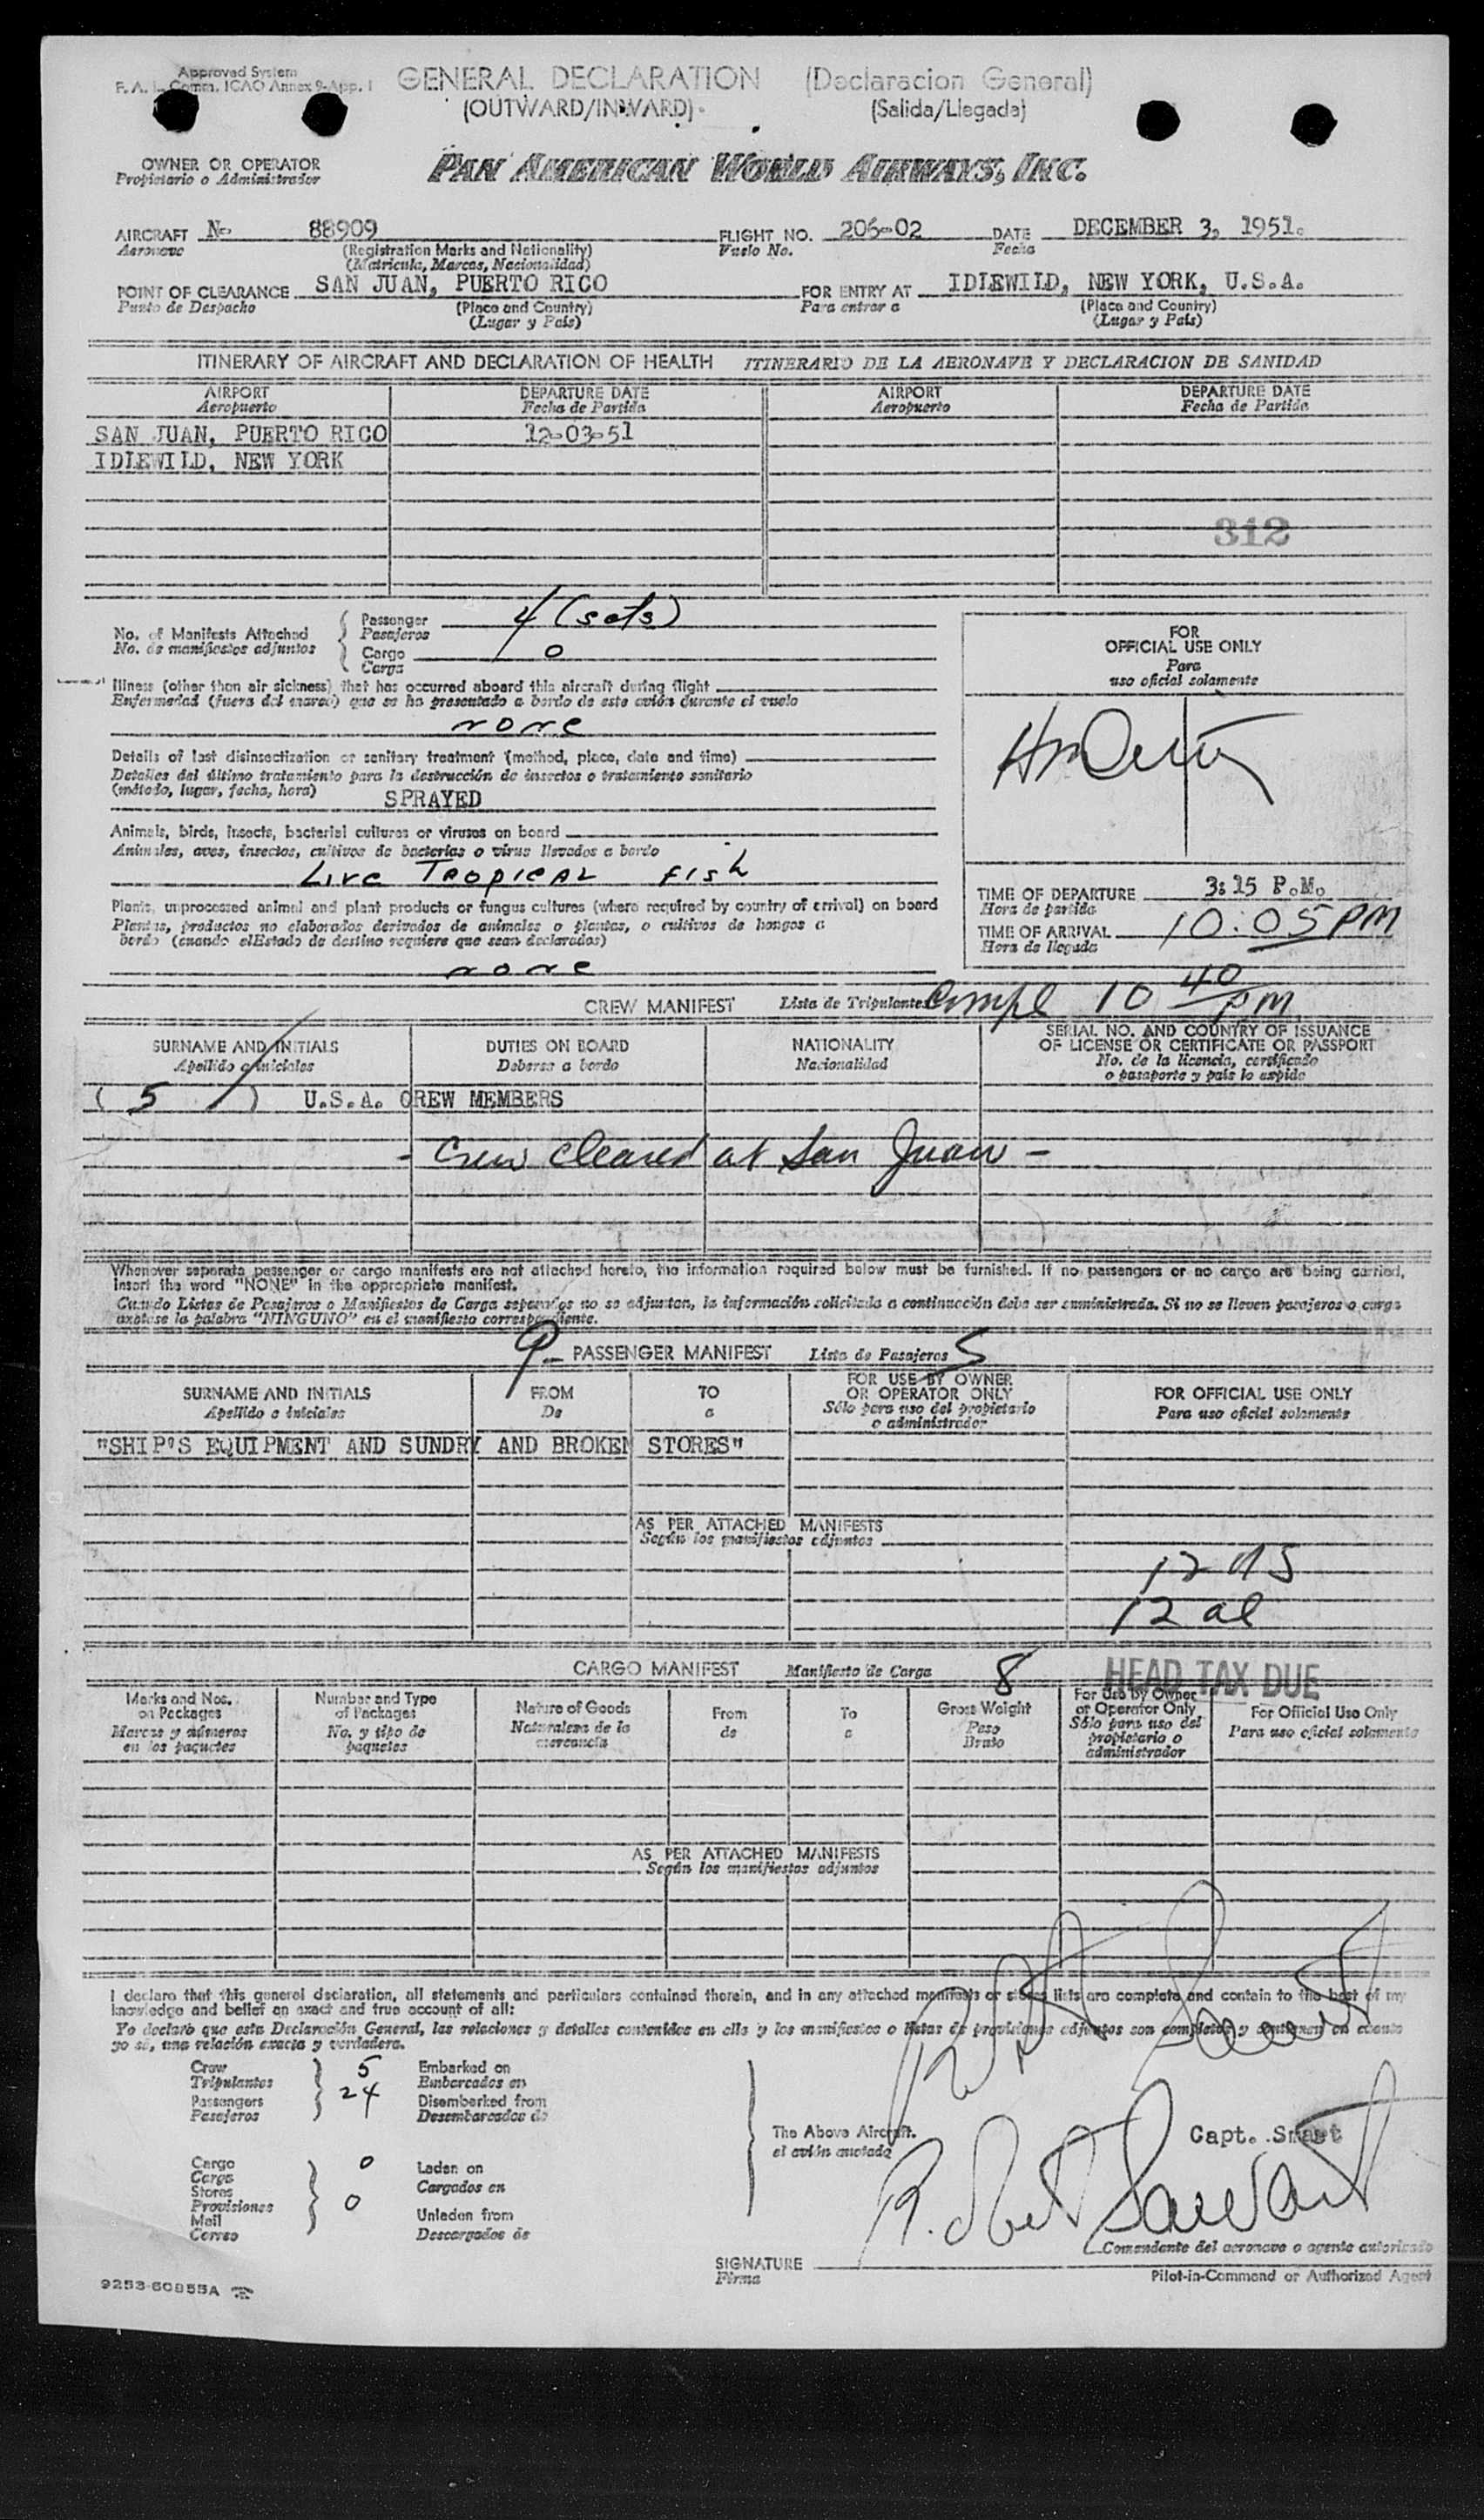 Approved System
F. A. L. Comm. ICAO Annex 9-App. 1
GENERAL DECLARATION (Declaracion General)
(OUTWARD/INWARD) (Salida/Llegada)
OWNER OR OPERATOR
Propietario o Administrador
PAN AMERICAN WORLD AIRWAYS, INC.
AIRCRAFT N- 88909 FLIGHT NO. 206-02 DATE DECEMBER 3, 1951.
Aeronave (Registration Marks and Nationality) Vuelo No. Fecha
(Matricula, Marcas, Nacionalidad)
POINT OF CLEARANCE SAN JUAN, PUERTO RICO FOR ENTRY AT IDLEWILD, NEW YORK, U.S.A.
Punto de Despacho (Place and Country) Para entrar a (Place and Country)
(Lugar y País) (Lugar y País)
ITINERARY OF AIRCRAFT AND DECLARATION OF HEALTH ITINERARIO DE LA AERONAVE Y DECLARACION DE SANIDAD
AIRPORT DEPARTURE DATE AIRPORT DEPARTURE DATE
Aeropuerto Fecha de Partida Aeropuerto Fecha de Partida
SAN JUAN, PUERTO RICO 12-03-51
IDLEWILD, NEW YORK
312
No. of Manifests Attached
No. de manifiestos adjuntos
Passenger 4 (sets)
Pasajeros
Cargo 0
Carga
Illness (other than air sickness) that has occurred aboard this aircraft during flight
Enfermedad (fuera del mareo) que se ha presentado a bordo de este avión durante el vuelo
none
Details of last disinsectization or sanitary treatment (method, place, date and time)
Detalles del último tratamiento para la destrucción de insectos o tratamiento sanitario
(método, lugar, fecha, hora)
SPRAYED
Animals, birds, insects, bacterial cultures or viruses on board
Animales, aves, insectos, cultivos de bacterias o virus llevados a bordo
Live Tropical fish
Plants, unprocessed animal and plant products or fungus cultures (where required by country of arrival) on board
Plantas, productos no elaborados derivados de animales o plantas, o cultivos de hongos a
bordo (cuando el Estado de destino requiere que sean declarados)
none
FOR
OFFICIAL USE ONLY
Para
uso oficial solamente
TIME OF DEPARTURE 3:15 P.M.
Hora de partida
TIME OF ARRIVAL 10:05 PM
Hora de llegada
CREW MANIFEST Lista de Tripulantes Compl 10 40 PM
SURNAME AND INITIALS DUTIES ON BOARD NATIONALITY SERIAL NO. AND COUNTRY OF ISSUANCE
OF LICENSE OR CERTIFICATE OR PASSPORT
Apellido e iniciales Deberes a bordo Nacionalidad No. de la licencia, certificado
o pasaporte y país lo expide
( 5 ) U.S.A. CREW MEMBERS
- Crew cleared at San Juan -
Whenever separate passenger or cargo manifests are not attached hereto, the information required below must be furnished. If no passengers or no cargo are being carried,
insert the word "NONE" in the appropriate manifest.
Cuando Listas de Pasajeros o Manifiestos de Carga separados no se adjuntan, la información solicitada a continuación debe ser suministrada. Si no se lleven pasajeros o carga
anótese la palabra "NINGUNO" en el manifiesto correspondiente.
PASSENGER MANIFEST Lista de Pasajeros
SURNAME AND INITIALS FROM TO FOR USE BY OWNER
OR OPERATOR ONLY FOR OFFICIAL USE ONLY
Apellido e iniciales De a Sólo para uso del propietario
o administrador Para uso oficial solamente
"SHIP'S EQUIPMENT AND SUNDRY AND BROKEN STORES"
AS PER ATTACHED MANIFESTS
Según los manifiestos adjuntos
12 US
12 al
CARGO MANIFEST Manifiesto de Carga 8 HEAD TAX DUE
Marks and Nos.
on Packages
Marcas y números
en los paquetes
Number and Type
of Packages
No. y tipo de
paquetes
Nature of Goods
Naturaleza de la
mercancía
From
de
To
a
Gross Weight
Peso
Bruto
For Use by Owner
or Operator Only
Sólo para uso del
propietario o
administrador
For Official Use Only
Para uso oficial solamente
AS PER ATTACHED MANIFESTS
Según los manifiestos adjuntos
I declare that this general declaration, all statements and particulars contained therein, and in any attached manifests or stores lists are complete and contain to the best of my
knowledge and belief an exact and true account of all:
Yo declaro que esta Declaración General, las relaciones y detalles contenidos en ella y los manifiestos o listas de provisiones adjuntos son completos y contienen en cuanto
yo sé, una relación exacta y verdadera.
Crew 5 Embarked on
Tripulantes Embarcados en
Passengers 24 Disembarked from
Pasajeros Desembarcados de
The Above Aircraft.
el avión anotado
Capt. Smart
Cargo 0 Laden on
Carga Cargados en
Stores
Provisiones 0
Mail Unladen from
Correo Descargados de
Comandante del aeronave o agente autorizado
SIGNATURE
Firma
Pilot-in-Command or Authorized Agent
9253-60855A